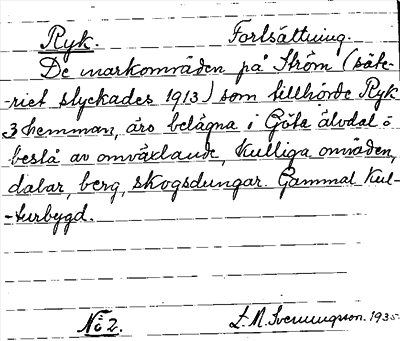 Ryk. Fortsättning.
De markområden på Ström (säte-
-riet styckades 1913) som tillhörde Ryk
3 hemman, äro belägna i Göta älvdal o
bestå av omväxlande, kulliga områden,
dalar, berg, skogsdungar. Gammal kul-
-turbygd.
No 2. L. M. Svenungsson. 1935.